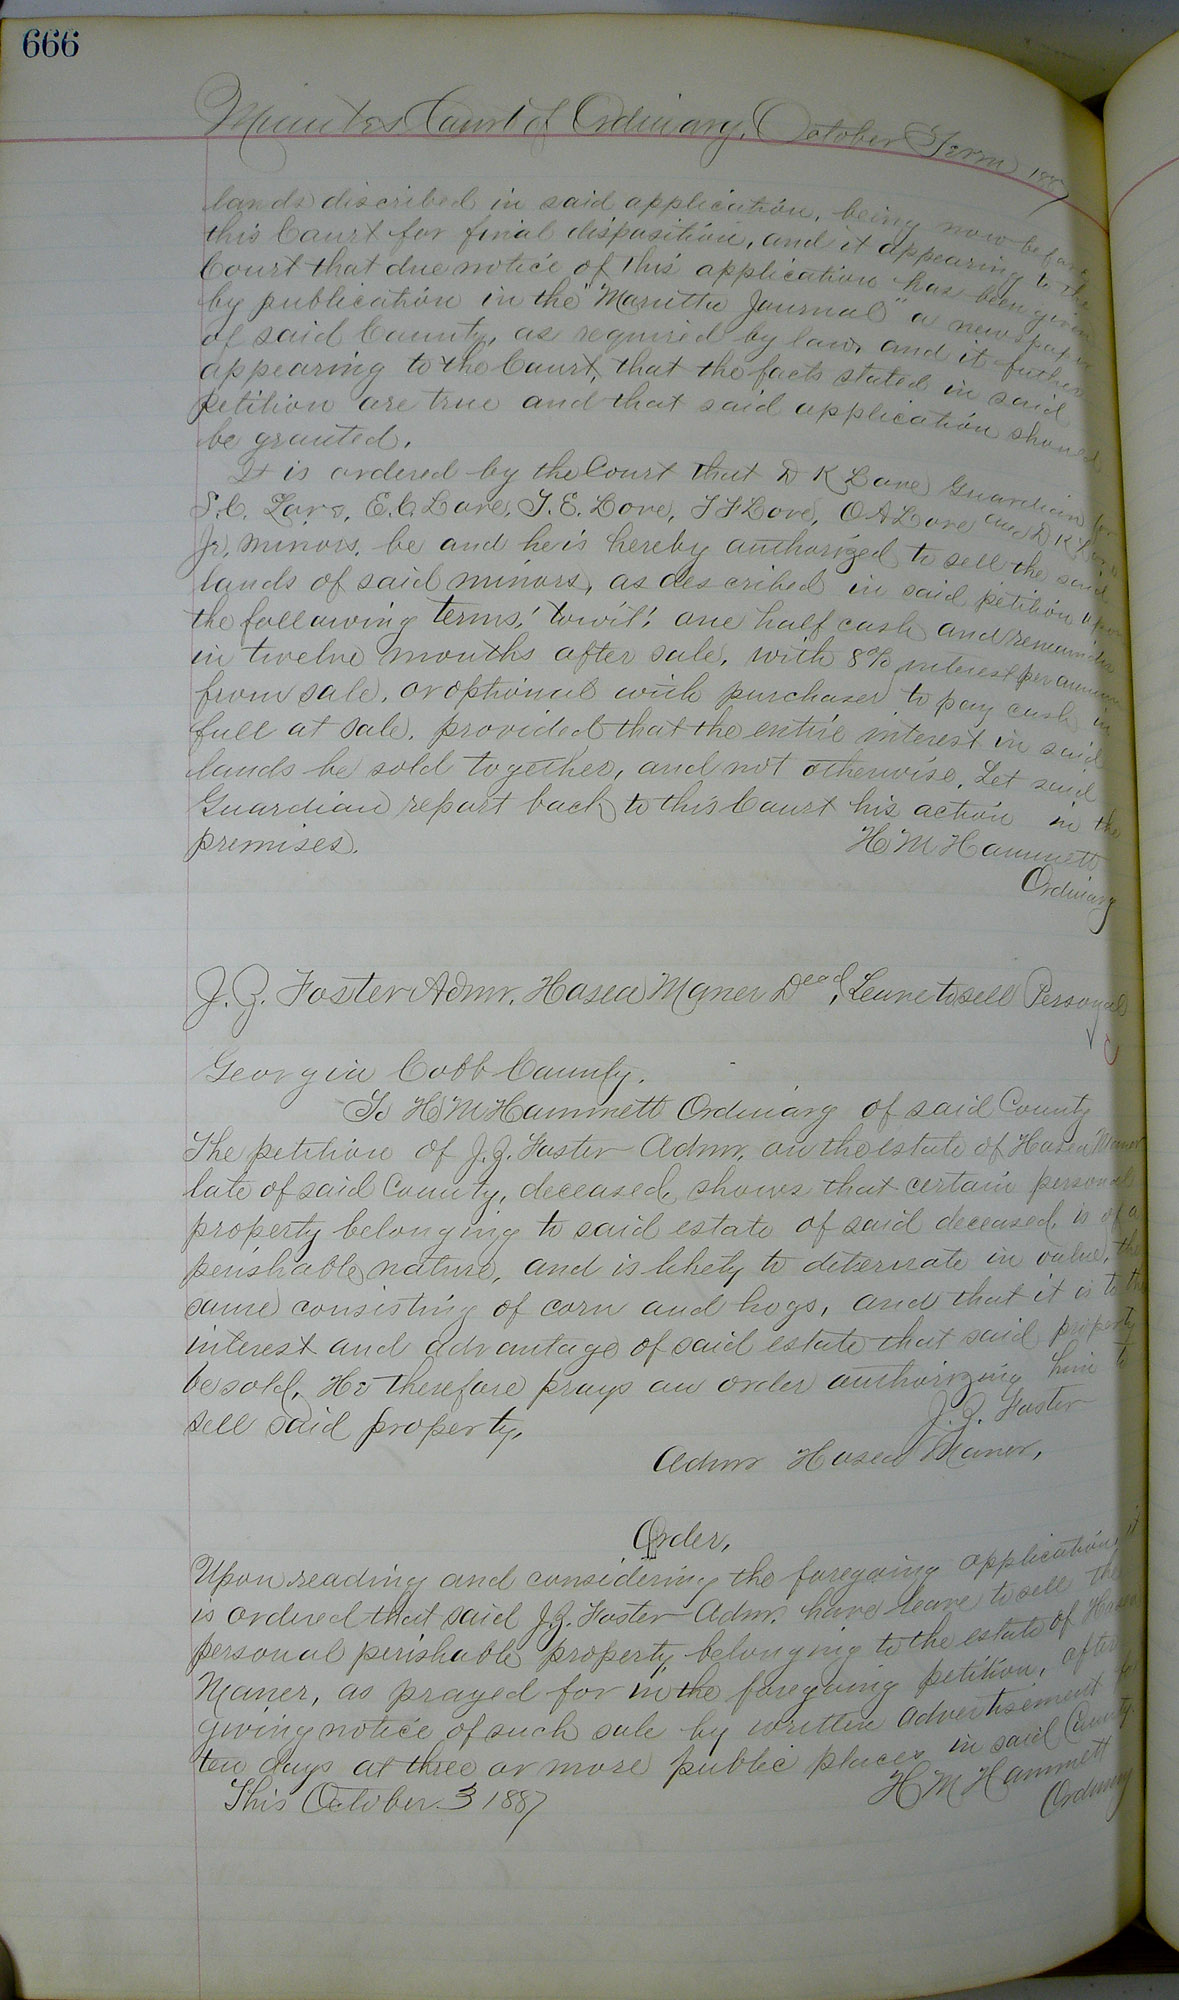 666
Minutes Court of Ordinary, October Term 1887
lands discribed in said application, being now before
this Court for final disposition, and it appearing to the
Court that due notice of this application has been given
by publication in the "Marietta Journal" a newspaper
of said County, as required by law, and it further
appearing to the Court, that the facts stated in said
petition are true and that said application should
be granted.
It is ordered by the Court that D K Love Guardian for
S.C. Love, E.C. Love, T.E. Love, T F Love, O A Love and D K Love
Jr, minors, be and he is hereby authorized to sell the said
lands of said minors, as described in said petition upon
the following terms, towit: one half cash and remainder
in twelve months after sale, with 8% interest per annum
from sale, or optional with purchaser to pay cash in
full at sale, provided that the entire interest in said
lands be sold together, and not otherwise. Let said
Guardian report back to this Court his action in the
premises.
H M Hammett
Ordinary
J. J. Foster Admr. Hosea Maner Decd, Leave to sell Personal
Georgia Cobb County.
To H M Hammett Ordinary of said County
The petition of J. J. Foster Admr. on the estate of Hosea Maner
late of said County, deceased, shows that certain personal
property belonging to said estate of said deceased, is of a
perishable nature, and is likely to deterirate in value, the
same consisting of corn and hogs, and that it is to the
interest and advantage of said estate that said property
be sold. He therefore prays an order authorizing him to
sell said property.
J. J. Foster
Admr Hosea Maner.
Order,
Upon reading and considering the foregoing application, it
is ordered that said J. J. Foster Admr. have leave to sell the
personal perishable property, belonging to the estate of Hosea
Maner, as prayed for in the foregoing petition, after
giving notice of such sale by written advertisement for
ten days at three or more public places in said County.
This October 3 1887
H M Hammett
Ordinary